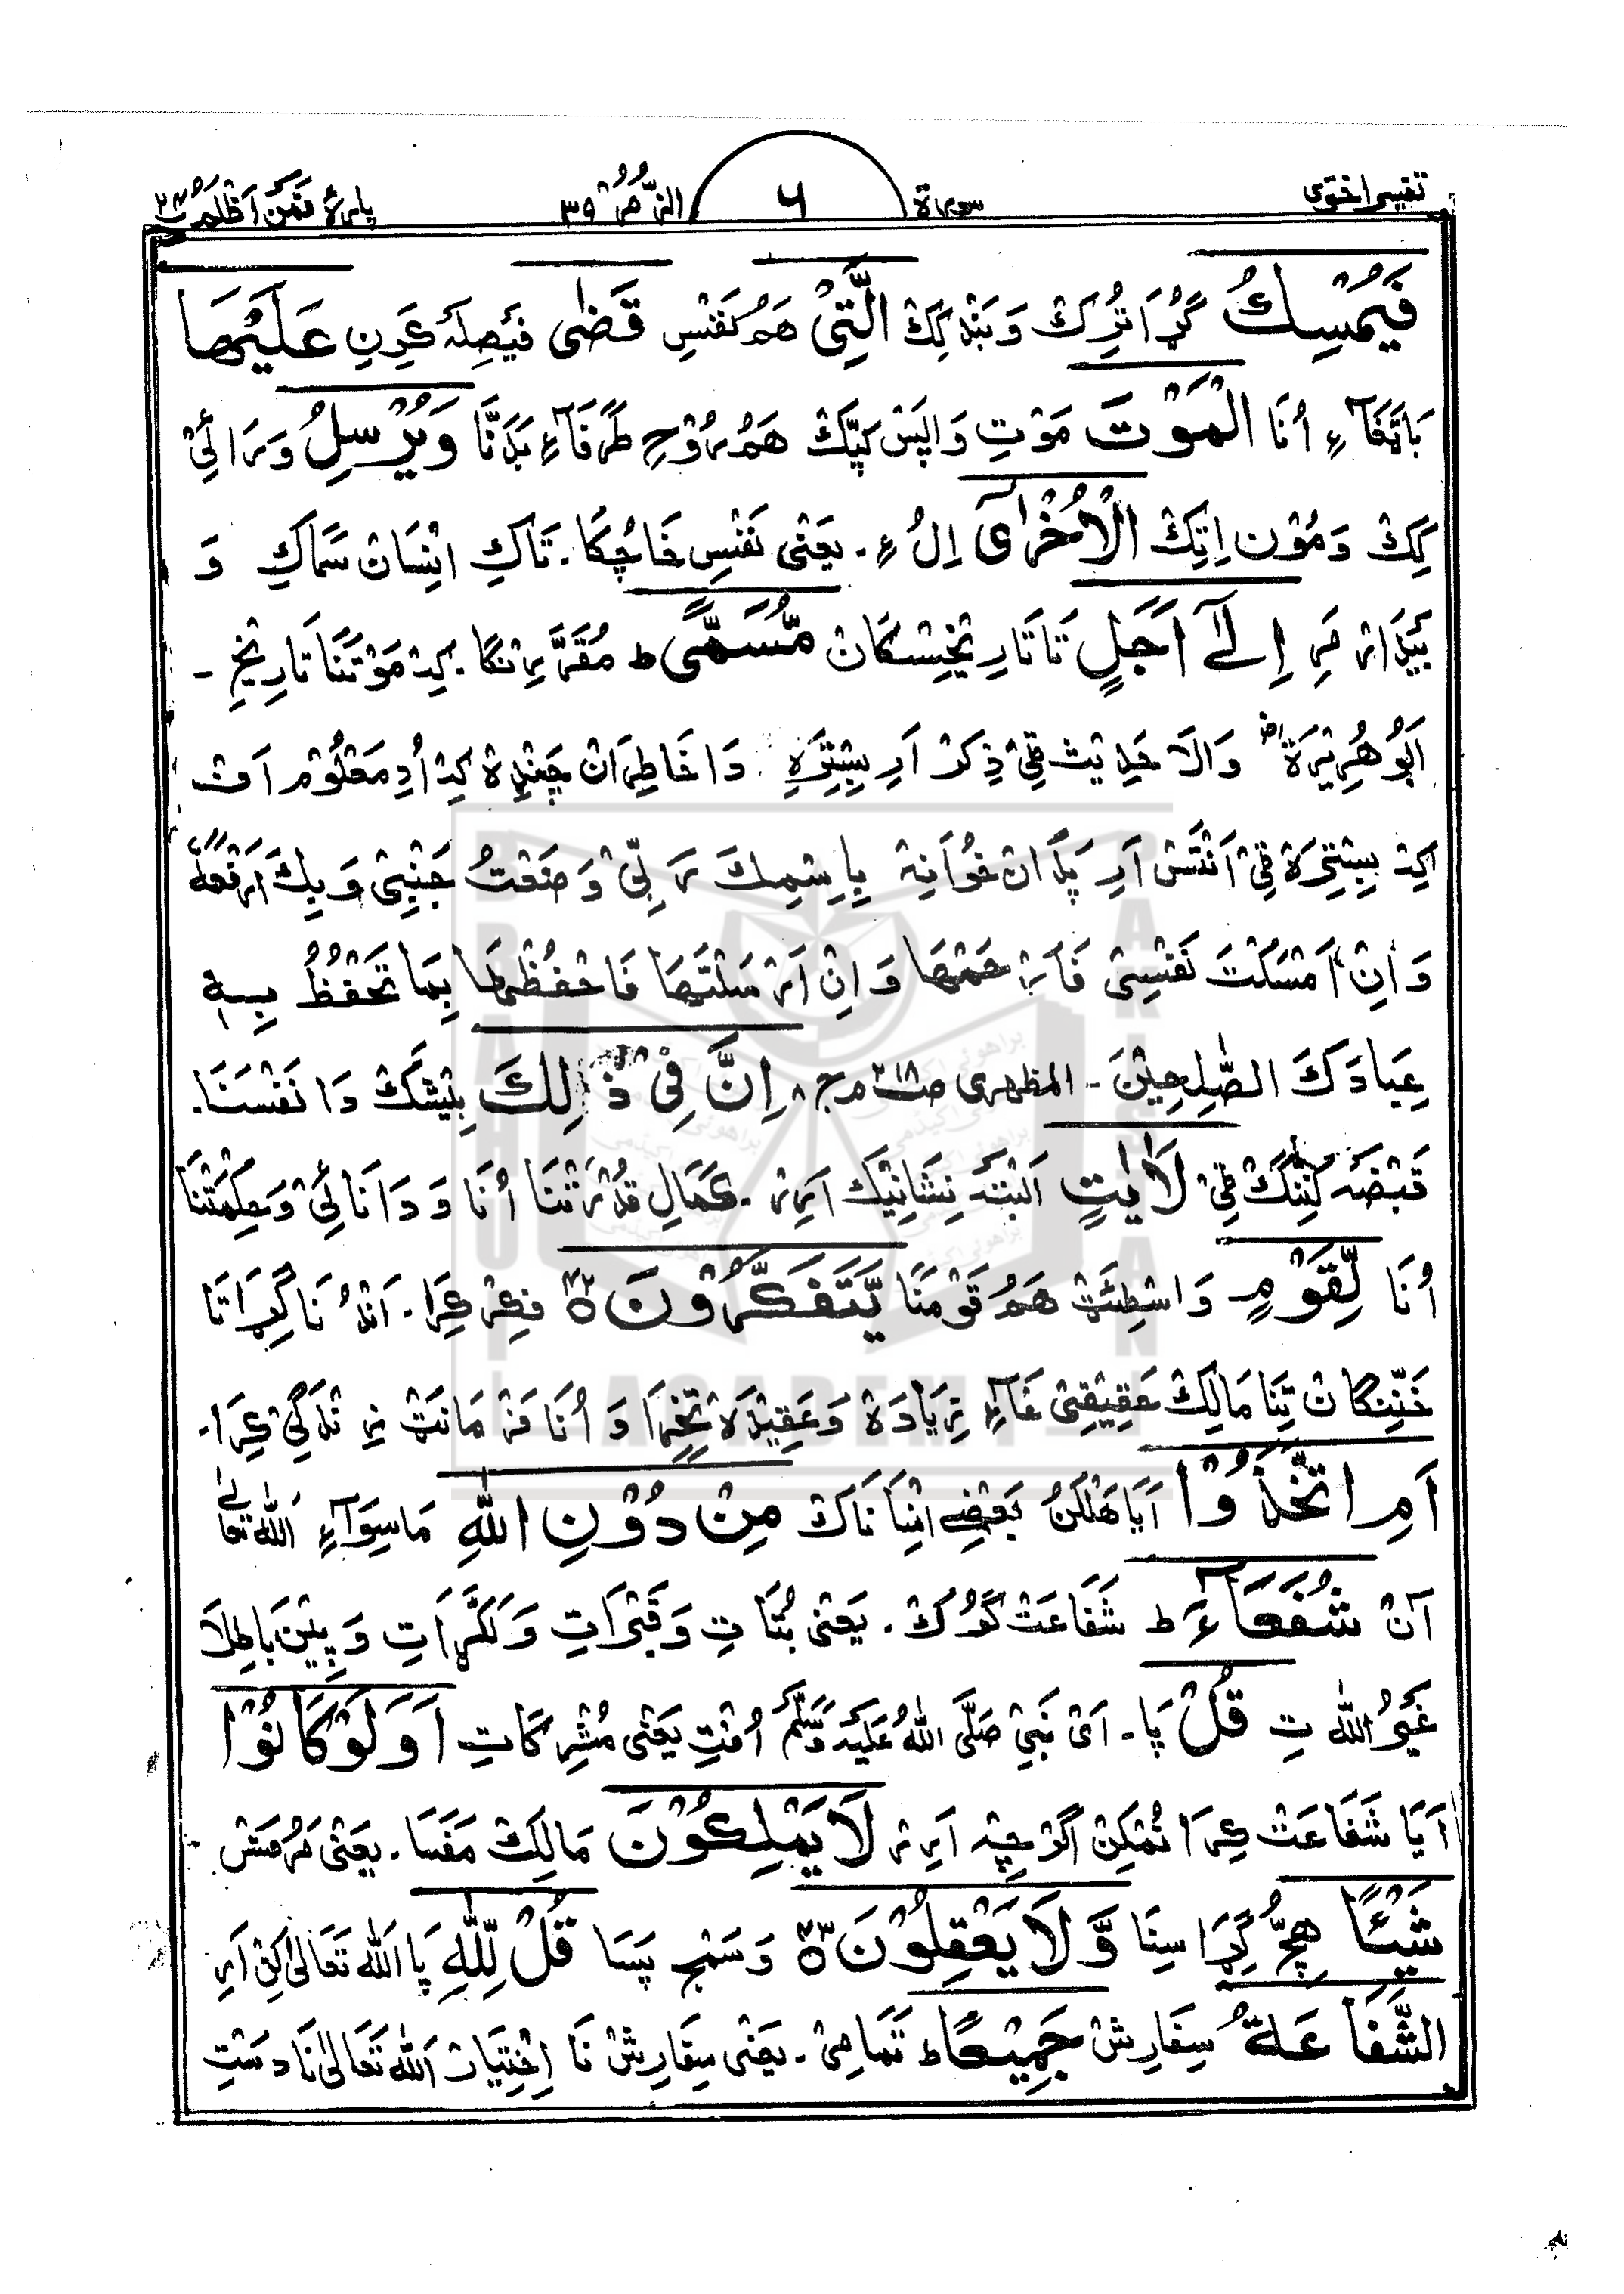 تفسیر اختری
سورة
٦
الزمر ٣٩
پارۂ فَمَنْ اَظْلَمُ ٢٤
فَیُمْسِكُ گُڑا تُرِكْ وَ بَنْد كِكْ الَّتِیْ هَمُ نَفْسِ قَضٰى فَیْصِلَہ كَرِنِ عَلَیْهَا
بَاتَّفَآءِ اُنَا الْمَوْتَ مَوْتِ وَاپَسْ كَپَّكْ هَمُ رُوْحِ طَرَفَآءِ بَدَنَّا وَیُرْسِلُ وَ رَائِیْ
كِكْ وَ مُوْن اِتِكْ الْاُخْرٰۤى اِلُ ءِ۔ یَعْنٰى نَفْسِ خَاچُكَا۔ تَاكِ اِنْسَانْ سَمَاكِ وَ
بَیْدَار مَرِ اِلٰۤى اَجَلٍ تَا تَارِیْخِسْكَانْ مُّسَمًّى ط مُقَرَّرِنْگَا۔ كِدْ مَوْتَنَا تَارِیْخِ۔
اَبُوْهُرَیْرَةْ رض وَالَا حَدِیْث ٹِیْ ذِكَرْ اَرِ بِسْتِرَہِ دَا خَاطِرَانْ چَنْدِہ كِدْ اُدِ مَعْلُوْم اَفْ
كِدْ بِسْتِرَہ ٹِیْ اَنْتَسْ اَرِ پَدَانْ خُوَانِہ بِاسْمِكَ رَبِّیْ وَضَعْتُ جَنْبِیْ وَ بِكَ اَرْفَعُهٗ
وَ اِنْ اَمْسَكْتَ نَفْسِیْ فَارْحَمْهَا وَ اِنْ اَرْسَلْتَهَا فَاحْفَظْهَا بِمَا تَحْفَظُ بِهٖ
عِبَادَكَ الصّٰلِحِیْنَ۔ المظهری صـ٢١٨ ج٨ اِنَّ فِیْ ذٰلِكَ بِیْشَكْ دَا نَفْسَنَا۔
قَبْضَہ كَنِّنْگ ٹِیْ لَاٰیٰتٍ اَلْبَتَہ نِشَانِیْك اَرِر۔ كَمَالِ قُدْرَتَنَا اُنَا وَ دَانَائِیْ وَ حِكْمَتَنَا
اُنَا لِّقَوْمٍ وَاسْطَئَٹْ هَمُ قَوْمَنَا یَّتَفَكَّرُوْنَ ٤٢ فِكِرْ كِرَا۔ اَنْدُنَا گِڑَاتَا
خَنِّنْگانْ تِنَا مَالِكْ حَقِیْقِیْ غَآءِ زِیَادَہ وَ عَقِیْدَہ تِخِرَا وَ اُنَا فَرْمَانَٹْ زِنْدَگِیْ كِرَا۔
اَمِ اتَّخَذُوْا اَیَا هَلْكُنُ بَعْضِے اِنْسَانَاكْ مِنْ دُوْنِ اللّٰهِ مَاسِوَآءِ اَللّٰه تَعَالٰى
آنْ شُفَعَآءَ ط شَفَاعَتْ كَرُوكْ۔ یَعْنٰى بُتَاتِ وَ قَبْرَاتِ وَ لَكَّڑَاتِ وَ پِیْن بَاطِلَا
غَیْرُ اللّٰه تِ قُلْ پَا۔ اَیْ نَبِیْ صَلَّى اللّٰهُ عَلَیْهِ وَسَلَّمْ اُفْتِ یَعْنٰى مُشْرِكَاتِ اَوَلَوْ كَانُوْا
اَیَا شَفَاعَتْ كِرَا مُمْكِنْ اَگَرْچِہ اَرِر لَا یَمْلِكُوْنَ مَالِكْ مَفَسَا۔ یَعْنٰى مَرُفَسْ
شَیْـًٔا هِچُّ گِڑَا سِنَا وَّ لَا یَعْقِلُوْنَ ٤٣ وَ سَمْج پَسَا قُلْ لِّلّٰهِ پَا اَللّٰه تَعَالٰى كِنْ اَرِ
الشَّفَاعَةُ سِفَارِشْ جَمِیْعًا ط تَمَامِیْ۔ یَعْنٰى سِفَارِشْ نَا اِخْتِیَارْ اَللّٰه تَعَالٰى نَا دَسْتِ